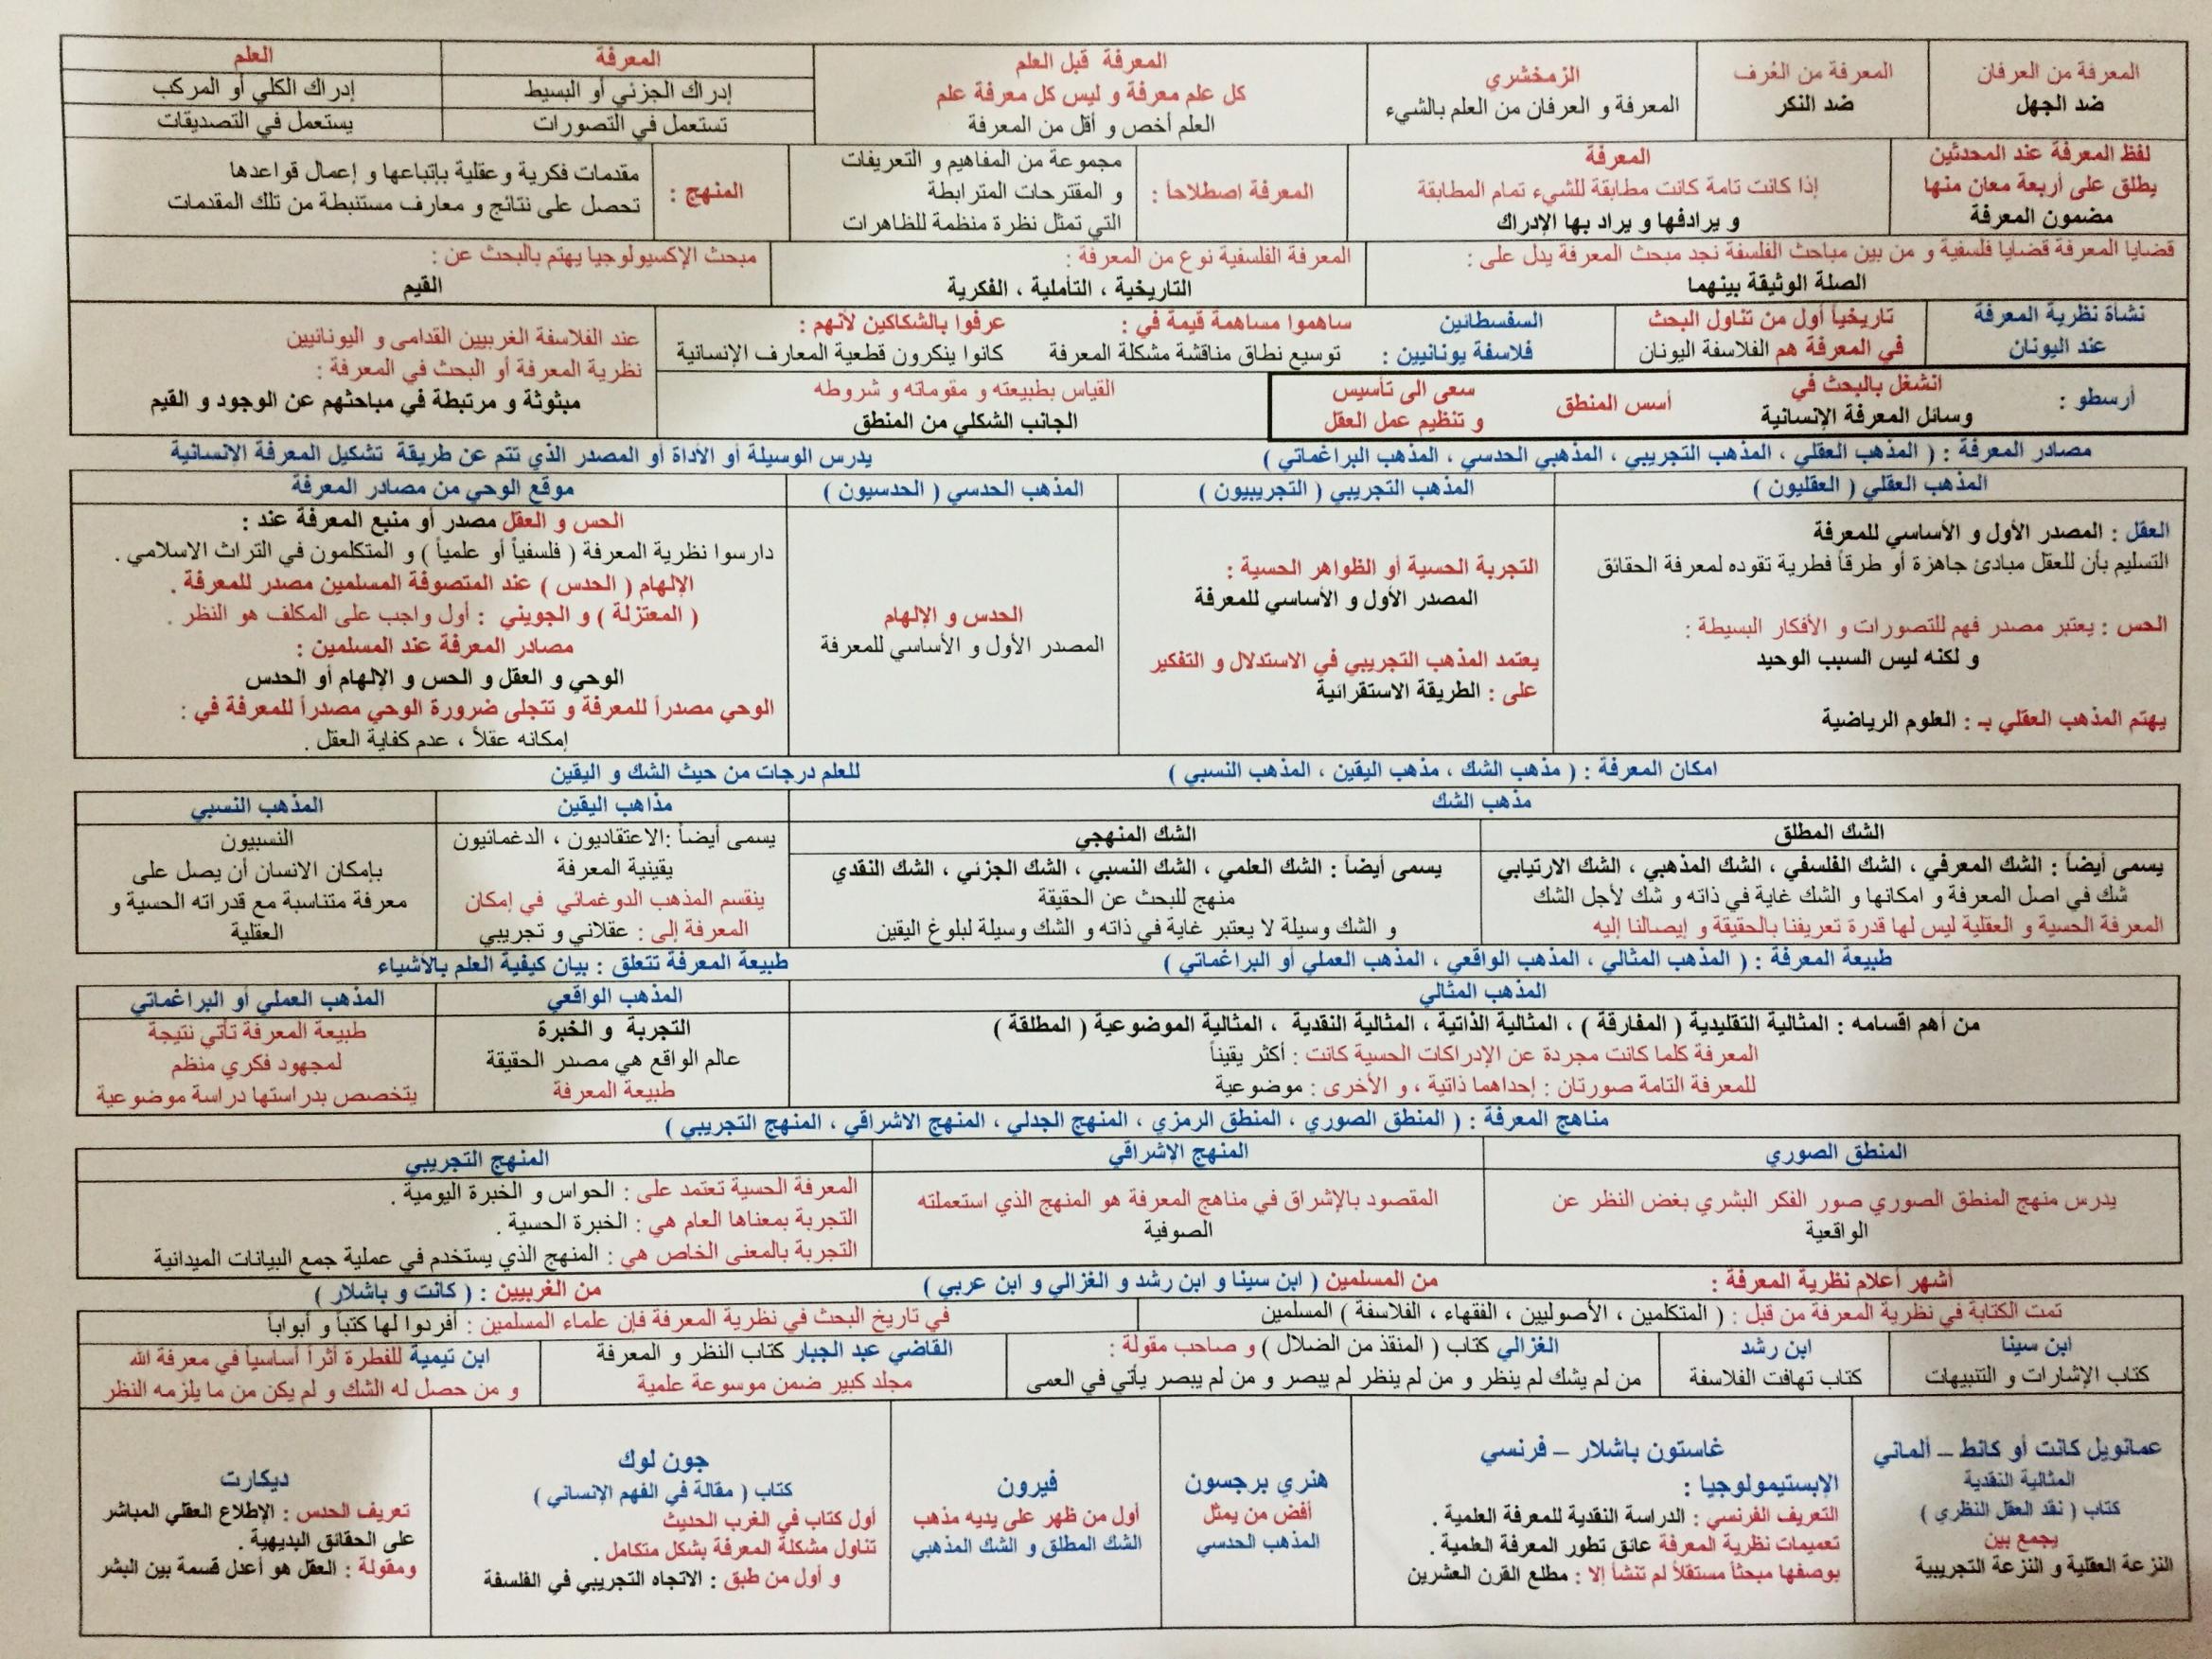 المعرفة من العرفان
ضد الجهل
المعرفة من العُرف
ضد النكر
الزمخشري
المعرفة و العرفان من العلم بالشيء
المعرفة قبل العلم
كل علم معرفة و ليس كل معرفة علم
العلم أخص و أقل من المعرفة
المعرفة
إدراك الجزئي أو البسيط
تستعمل في التصورات
العلم
إدراك الكلي أو المركب
يستعمل في التصديقات
لفظ المعرفة عند المحدثين
يطلق على أربعة معان منها
مضمون المعرفة
المعرفة
إذا كانت تامة كانت مطابقة للشيء تمام المطابقة
و يرادفها و يراد بها الإدراك
المعرفة اصطلاحاً :
مجموعة من المفاهيم و التعريفات
و المقترحات المترابطة
التي تمثل نظرة منظمة للظاهرات
المنهج :
مقدمات فكرية وعقلية بإتباعها و إعمال قواعدها
تحصل على نتائج و معارف مستنبطة من تلك المقدمات
قضايا المعرفة قضايا فلسفية و من بين مباحث الفلسفة نجد مبحث المعرفة يدل على :
الصلة الوثيقة بينهما
المعرفة الفلسفية نوع من المعرفة :
التاريخية ، التأملية ، الفكرية
مبحث الإكسيولوجيا يهتم بالبحث عن :
القيم
نشأة نظرية المعرفة
عند اليونان
تاريخياً أول من تناول البحث
في المعرفة هم الفلاسفة اليونان
السفسطائين ساهموا مساهمة قيمة في : عرفوا بالشكاكين لأنهم :
فلاسفة يونانيين : توسيع نطاق مناقشة مشكلة المعرفة كانوا ينكرون قطعية المعارف الإنسانية
عند الفلاسفة الغربيين القدامى و اليونانيين
نظرية المعرفة أو البحث في المعرفة :
مبثوثة و مرتبطة في مباحثهم عن الوجود و القيم
أرسطو :
انشغل بالبحث في
وسائل المعرفة الإنسانية
أسس المنطق
سعى الى تأسيس
و تنظيم عمل العقل
القياس بطبيعته و مقوماته و شروطه
الجانب الشكلي من المنطق
مصادر المعرفة : ( المذهب العقلي ، المذهب التجريبي ، المذهبي الحدسي ، المذهب البراغماتي ) يدرس الوسيلة أو الأداة أو المصدر الذي تتم عن طريقة تشكيل المعرفة الإنسانية
المذهب العقلي ( العقليون )
العقل : المصدر الأول و الأساسي للمعرفة
التسليم بأن للعقل مبادئ جاهزة أو طرقاً فطرية تقوده لمعرفة الحقائق
الحس : يعتبر مصدر فهم للتصورات و الأفكار البسيطة :
و لكنه ليس السبب الوحيد
يهتم المذهب العقلي بـ : العلوم الرياضية
المذهب التجريبي ( التجريبيون )
التجربة الحسية أو الظواهر الحسية :
المصدر الأول و الأساسي للمعرفة
يعتمد المذهب التجريبي في الاستدلال و التفكير
على : الطريقة الاستقرائية
المذهب الحدسي ( الحدسيون )
الحدس و الإلهام
المصدر الأول و الأساسي للمعرفة
موقع الوحي من مصادر المعرفة
الحس و العقل مصدر أو منبع المعرفة عند :
دارسوا نظرية المعرفة ( فلسفياً أو علمياً ) و المتكلمون في التراث الاسلامي .
الإلهام ( الحدس ) عند المتصوفة المسلمين مصدر للمعرفة .
( المعتزلة ) و الجويني : أول واجب على المكلف هو النظر .
مصادر المعرفة عند المسلمين :
الوحي و العقل و الحس و الإلهام أو الحدس
الوحي مصدراً للمعرفة و تتجلى ضرورة الوحي مصدراً للمعرفة في :
إمكانه عقلاً ، عدم كفاية العقل .
امكان المعرفة : ( مذهب الشك ، مذهب اليقين ، المذهب النسبي ) للعلم درجات من حيث الشك و اليقين
مذهب الشك
الشك المطلق
يسمى أيضاً : الشك المعرفي ، الشك الفلسفي ، الشك المذهبي ، الشك الارتيابي
شك في اصل المعرفة و امكانها و الشك غاية في ذاته و شك لأجل الشك
المعرفة الحسية و العقلية ليس لها قدرة تعريفنا بالحقيقة و إيصالنا إليه
الشك المنهجي
يسمى أيضاً : الشك العلمي ، الشك النسبي ، الشك الجزئي ، الشك النقدي
منهج للبحث عن الحقيقة
و الشك وسيلة لا يعتبر غاية في ذاته و الشك وسيلة لبلوغ اليقين
مذاهب اليقين
يسمى أيضاً :الاعتقاديون ، الدغمائيون
يقينية المعرفة
ينقسم المذهب الدوغمائي في إمكان
المعرفة إلى : عقلاني و تجريبي
المذهب النسبي
النسبيون
بإمكان الانسان أن يصل على
معرفة متناسبة مع قدراته الحسية و
العقلية
طبيعة المعرفة : ( المذهب المثالي ، المذهب الواقعي ، المذهب العملي أو البراغماتي ) طبيعة المعرفة تتعلق : بيان كيفية العلم بالأشياء
المذهب المثالي
من أهم اقسامه : المثالية التقليدية ( المفارقة ) ، المثالية الذاتية ، المثالية النقدية ، المثالية الموضوعية ( المطلقة )
المعرفة كلما كانت مجردة عن الإدراكات الحسية كانت : أكثر يقيناً
للمعرفة التامة صورتان : إحداهما ذاتية ، و الأخرى : موضوعية
المذهب الواقعي
التجربة و الخبرة
عالم الواقع هي مصدر الحقيقة
طبيعة المعرفة
المذهب العملي أو البراغماتي
طبيعة المعرفة تأتي نتيجة
لمجهود فكري منظم
يتخصص بدراستها دراسة موضوعية
مناهج المعرفة : ( المنطق الصوري ، المنطق الرمزي ، المنهج الجدلي ، المنهج الاشراقي ، المنهج التجريبي )
المنطق الصوري
يدرس منهج المنطق الصوري صور الفكر البشري بغض النظر عن
الواقعية
المنهج الإشراقي
المقصود بالإشراق في مناهج المعرفة هو المنهج الذي استعملته
الصوفية
المنهج التجريبي
المعرفة الحسية تعتمد على : الحواس و الخبرة اليومية .
التجربة بمعناها العام هي : الخبرة الحسية .
التجربة بالمعنى الخاص هي : المنهج الذي يستخدم في عملية جمع البيانات الميدانية
أشهر أعلام نظرية المعرفة : من المسلمين ( ابن سينا و ابن رشد و الغزالي و ابن عربي ) من الغربيين : ( كانت و باشلار )
تمت الكتابة في نظرية المعرفة من قبل : ( المتكلمين ، الأصوليين ، الفقهاء ، الفلاسفة ) المسلمين
في تاريخ البحث في نظرية المعرفة فإن علماء المسلمين : أفردوا لها كتباً و أبواباً
ابن سينا
كتاب الإشارات و التنبيهات
ابن رشد
كتاب تهافت الفلاسفة
الغزالي كتاب ( المنقذ من الضلال ) و صاحب مقولة :
من لم يشك لم ينظر و من لم ينظر لم يبصر و من لم يبصر يأتي في العمى
القاضي عبد الجبار كتاب النظر و المعرفة
مجلد كبير ضمن موسوعة علمية
ابن تيمية للفطرة أثراً أساسياً في معرفة الله
و من حصل له الشك و لم يكن من ما يلزمه النظر
عمانويل كانت أو كانط – ألماني
المثالية النقدية
كتاب ( نقد العقل النظري )
يجمع بين
النزعة العقلية و النزعة التجريبية
غاستون باشلار – فرنسي
الإبستيمولوجيا :
التعريف الفرنسي : الدراسة النقدية للمعرفة العلمية .
تعميمات نظرية المعرفة عائق تطور المعرفة العلمية .
بوصفها مبحثاً مستقلاً لم تنشأ إلا : مطلع القرن العشرين
هنري برجسون
أفض من يمثل
المذهب الحدسي
فيرون
أول من ظهر على يديه مذهب
الشك المطلق و الشك المذهبي
جون لوك
كتاب ( مقالة في الفهم الإنساني )
أول كتاب في الغرب الحديث
تناول مشكلة المعرفة بشكل متكامل .
و أول من طبق : الاتجاه التجريبي في الفلسفة
ديكارت
تعريف الحدس : الإطلاع العقلي المباشر
على الحقائق البديهية .
ومقولة : العقل هو أعدل قسمة بين البشر